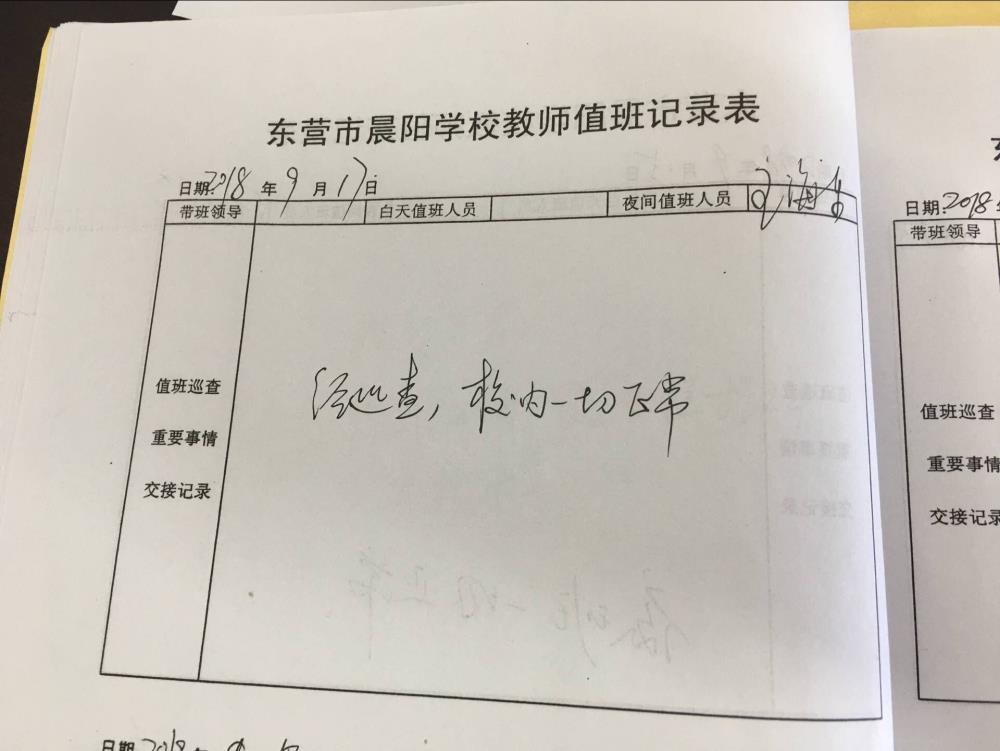 东营市晨阳学校教师值班记录表
日期:2018年9月17日
带班领导 白天值班人员 夜间值班人员
值班巡查
重要事情
交接记录
经巡查,校内一切正常
日期:2018年
带班领导
值班巡查
重要事情
交接记录
日期:2018